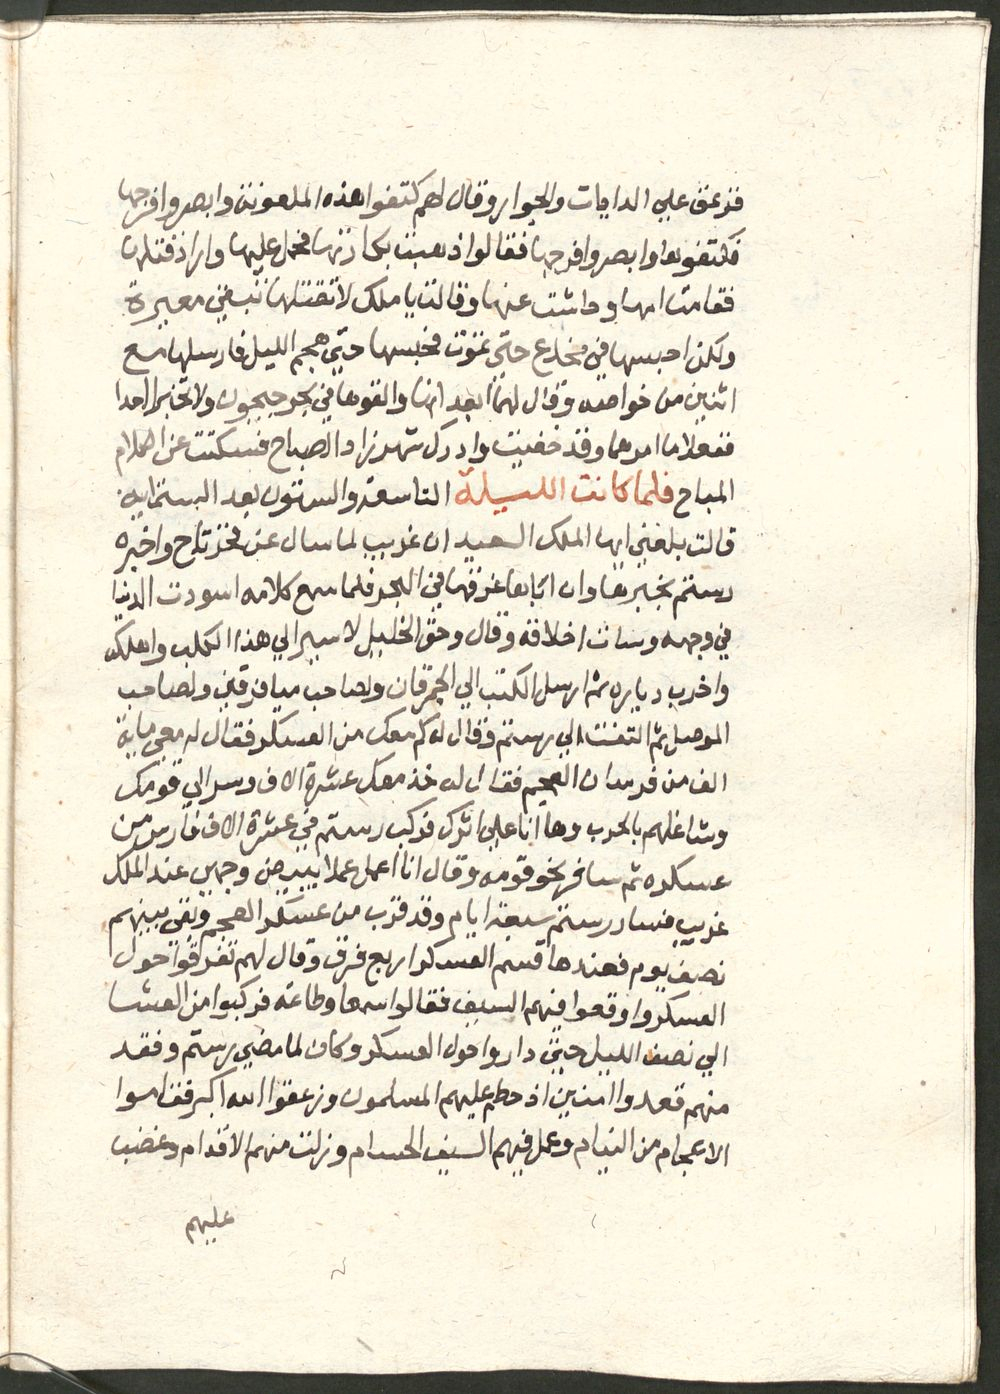 فزعق علي الدايات والجوار وقال لهم كتفوا هذه الملعونة وابصروا فرجها
فكتفوها وابصروا فرجها فقالوا ذهبت بكارتها فحمل عليها واراد قتلها
فقامت امها وحاشت عنها وقالت يا ملك لا تقتلها تبقي معيرة
ولكن احبسها في مخدع حتي تموت فحبسها حتي هجم الليل فارسلها مع
اثنين من خواصه وقال لهما ابعد انها والقوها في بحر جيحون ولا تخبرا احدا
ففعلا ما امرهما وقد خفيت وادرك شهرزاد الصباح فسكتت عن الكلام
المباح فلما كانت الليلة التاسعة والستون بعد الستماية
قالت بلغني ايها الملك السعيد ان غريب لما سال عن فخر تاج واخبره
رستم بخبرها وان اباها غرقها في البحر فلما سمع كلامه اسودت الدنيا
في وجهه وسات اخلاقه وقال وحق الخليل لا سيرا لي هذا الكلب واهلكه
واخرب دياره ثم ارسل الكتب الي الجمرقان ولصاحب ميافرقين ولصاحب
الموصل ثم التفت الي رستم وقال له كم معك من العسكر فقال له معي ماية
الف من فرسان العجم فقال له خذ معك عشرة الاف وسر الي قومك
وشاغلهم بالحرب وها انا علي اثرك فركب رستم في عشرة الاف فارس من
عسكره ثم سافر نحو قومه وقال انا اعمل عملا يبيض وجهي عند الملك
غريب فسار رستم سبعة ايام وقد قرب من عسكر العجم وبقي بينهم
نصف يوم فعندها قسم العسكر اربع فرق وقال لهم تفرقوا حول
العسكر واوقعوا فيهم السيف فقالوا سمعا وطاعة فركبوا من العشا
الي نصف الليل حتي داروا حول العسكر وكان لما مضي رستم وفقد
منهم قعدوا امنين اذ حطم عليهم المسلمون وزعقوا الله اكبر فقاموا
الاعجام من النيام وعمل فيهم السيف الحسام وزلت منهم الاقدام وغضب
عليهم